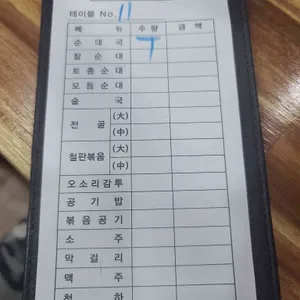 테이블 No. 11
메 뉴 수 량 금 액
순 대 국 T
찰 순 대
토 종 순 대
모 듬 순 대
술 국
전 골 (大)
(中)
철판볶음 (大)
(中)
오 소 리 감 투
공 기 밥
볶 음 공 기
소 주
막 걸 리
맥 주
청 하